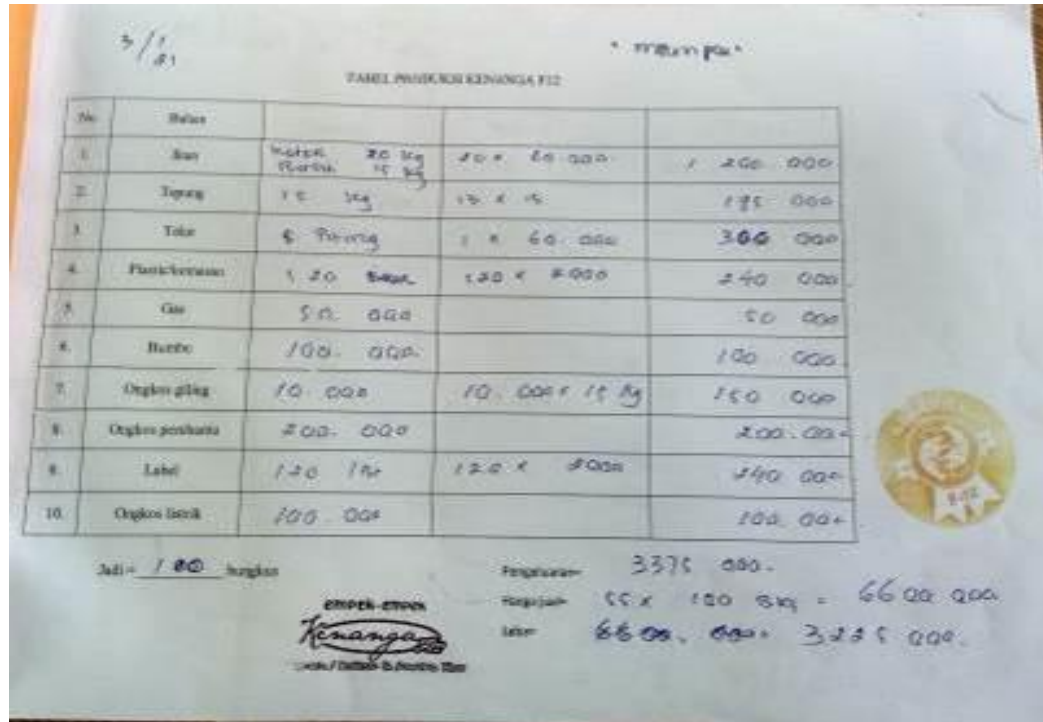 3/1 21
TABEL PRODUKSI KENANGA F12
No. Bahan
1. Ikan 20 Kg 15 Kg 20 x 60 000 1 200 000
2. Tepung 15 Kg 13 x 15 195 000
3. Telur 5 60.000 300 000
4. Plastic/kemasan 120 120 x 2000 240 000
5. Gas 50 000 50 000
6. Bumbu 100.000. 100 000
7. Ongkos giling 10.000 10.000 x 15 Kg 150 000
8. Ongkos pembantu 200.000 200.000
9. Label 120 120 x 2000 240 000
10. Ongkos listrik 100.000 100 000
Jadi = bungkus
Pengeluaran= 3375 000.
Harga jual= 55 x 120 = 6600 000
Laba= 6600.000. 3225 000.
EMPEK-EMPEK
Kenanga
F12